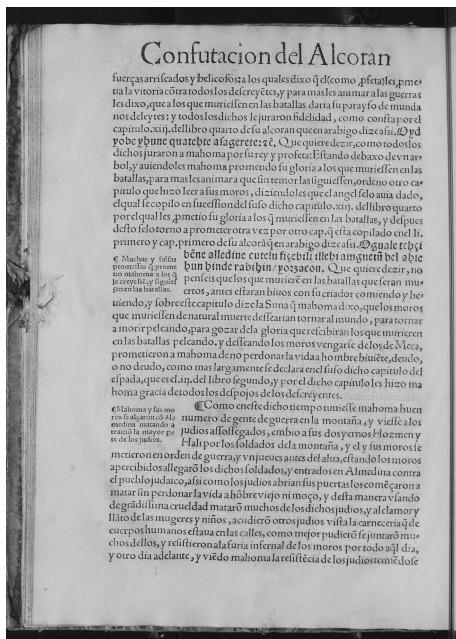 Confutacion del Alcoran
fuerças arriscados y belicosos: a los quales dixo q̃ el (como ꝓfeta) les ꝓme-
tia la vitoria cõtra todos los descreyẽtes, y para mas les animar a las guerras
les dixo, que a los que muriessen en las batallas daria su parayso de munda
nos deleytes: y todos los dichos le juraron fidelidad, como consta por el
capitulo.xiij. del libro quarto de su alcoran que en arabigo dize assi. Oyd
yobe yhune quatehte asagerete: ⁊c̃. Que quiere dezir, como todos los
dichos juraron a mahoma por su rey y profeta: Estando debaxo de vn ar-
bol, y auiendoles mahoma prometido su gloria a los que muriessen en las
batallas, para mas les animar a que sin temor las siguiessen, ordeno otro ca-
pitulo que hizo leer a sus moros, diziendoles que el angel selo auia dado,
el qual se copilo en sucession del suso dicho capitulo.xiij. del libro quarto
por el qual les ꝓmetio su gloria a los q̃ muriessen en las batallas, y despues
desto selo torno a prometer otra vez por otro cap. q̃ esta copilado en el li.
primero y cap. primero de su alcorã q̃ en arabigo dize assi. Oguale tehçi
bẽne alledine cutelu fiçebili illehi amguetũ bel ahie
hun hinde rabihin/yozzacon. Que quiere dezir, no
penseis que los que murierẽ en las batallas que seran mu-
ertos, antes estaran biuos con su criador comiendo y be-
¶ Muchas y falsas
promessas q̃ prome
tio mahoma a los q̃
le creyessẽ, y siguies
sen en las batallas.
uiendo, y sobre este capitulo dize la Suna q̃ mahoma dixo, que los moros
que muriessen de natural muerte dessearian tornar al mundo, para tornar
a morir peleando, para gozar de la gloria que rescibiran los que murieren
en las batallas peleando. y desseando los moros vengarse de los de Meca,
prometieron a mahoma de no perdonar la vida a hombre biuiẽte, deudo,
o no deudo, como mas largamente se declara en el suso dicho capitulo del
espada, que es el.iij. del libro segundo, y por el dicho capitulo les hizo ma
homa gracia de todos los despojos de los descreyentes.
¶ Como en este dicho tiempo tuuiesse mahoma buen
numero de gente de guerra en la montaña, y viesse a los
judios assossegados, embio a sus dos yernos Hozmen y
Hali por los soldados de la montaña, y el y sus moros se
¶ Mahoma y sus mo
ros se alçaron cõ Al
medina matando a
traiciõ la mayor pa
te de los judios.
metieron en orden de guerra, y vn jueues antes del alua, estando los moros
apercibidos allegarõ los dichos soldados, y entrados en Almedina contra
el pueblo judaico, assi como los judios abrian sus puertas los comẽçaron a
matar sin perdonar la vida a hõbre viejo ni moço, y desta manera vsando
de grãdissima crueldad matarõ muchos de los dichos judios, y al clamor y
llãto de las mugeres y niños, acudierõ otros judios vista la carneceria q̃ de
cuerpos humanos estaua en las calles, como mejor pudierõ se juntarõ mu-
chos dellos, y resistieron a la furia infernal de los moros por todo aq̃l dia,
y otro dia adelante, y viẽdo mahoma la resistẽcia de los judios temiẽdose